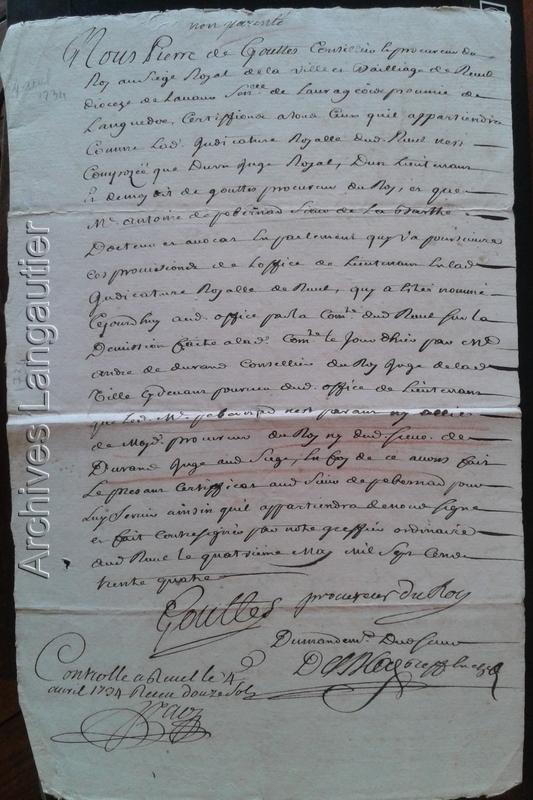 non parenté
4 avril
1734
Nous Pierre de Gouttes Conseiller procureur du
Roy au Siege Royal de la ville et Bailliage de Revel
dioceze de Lavaur Senec^lle de Lauragois province de
Languedoc, Certiffions a tous Ceux quil appartiendra
Comme Lad. Judicature Royalle dud. Revel nest
Composée que Dun Juge Royal, Dun Lieutenant
Et de moy dit de gouttes procureur du Roy, et que
M^e. antoine de pebernad Sieur de La Barthe
Docteur et avocat En parlement quy va poursuivre
Les provisions de Loffice de Lieutenant En lad
Judicature Royalle de Revel, quy a Esté nommé
Cejourdhuy aud. office par la Com^té dud Revel sur la
Demission faite a lad. Com^té le Jour dhier par M^e
andre de durand Conseiller du Roy Juge de lad
Ville Cy devant pourveu dud. office de Lieutenant
que led. M^e. pebernad nest parant ny allié
de Moyd. procureur du Roy ny dud. Sieur. de
Durand Juge aud Siege, En foy de ce avons fait
Le presant Certifficat aud Sieur de pebernad pour
Luy Servir ainsin quil appartiendra de nous signe
et fait contresigner par notre greffier ordinaire
aud Revel le quatrieme May Mil Sept Cens
trente quatre
Gouttes procureur du Roy
Du mandem^t. Dud sieur
Controlle a Revel le 4^e
avril 1734 Receu douze sols
Archives Langautier